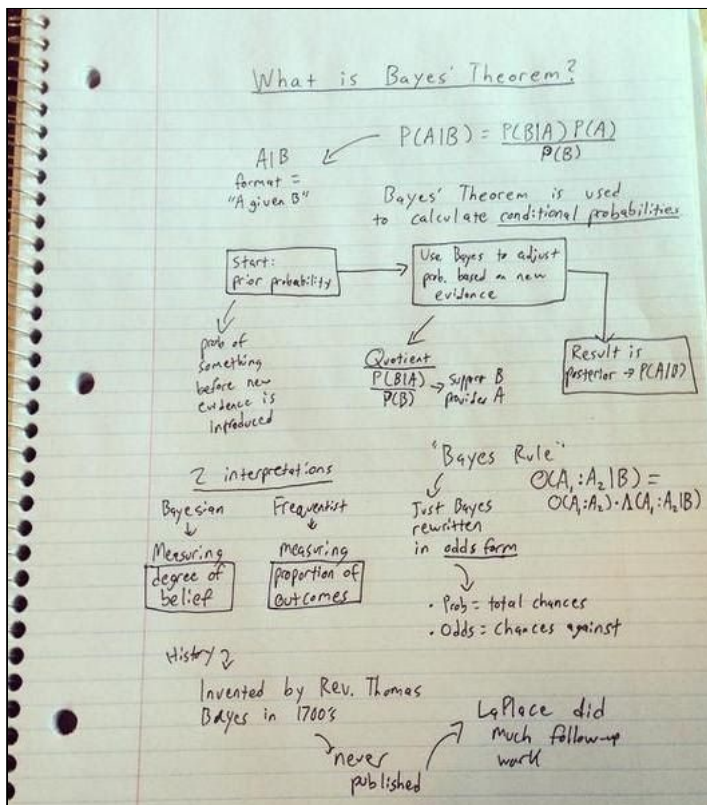 What is Bayes' Theorem?
P(A|B) = P(B|A) P(A)
P(B)
A|B
format =
"A given B"
Bayes' Theorem is used
to calculate conditional probabilities
Start:
prior probability
Use Bayes to adjust
prob. based on new
evidence
Result is
posterior → P(A|B)
prob of
something
before new
evidence is
introduced
Quotient
P(B|A)
P(B)
→ support B
provides A
2 interpretations
Bayesian
Measuring
degree of
belief
Frequentist
measuring
proportion of
outcomes
"Bayes Rule"
Just Bayes
rewritten
in odds form
O(A₁:A₂|B) =
O(A₁:A₂)·Λ(A₁:A₂|B)
• Prob = total chances
• Odds = chances against
History
Invented by Rev. Thomas
Bayes in 1700's
never
published
LaPlace did
much follow-up
work